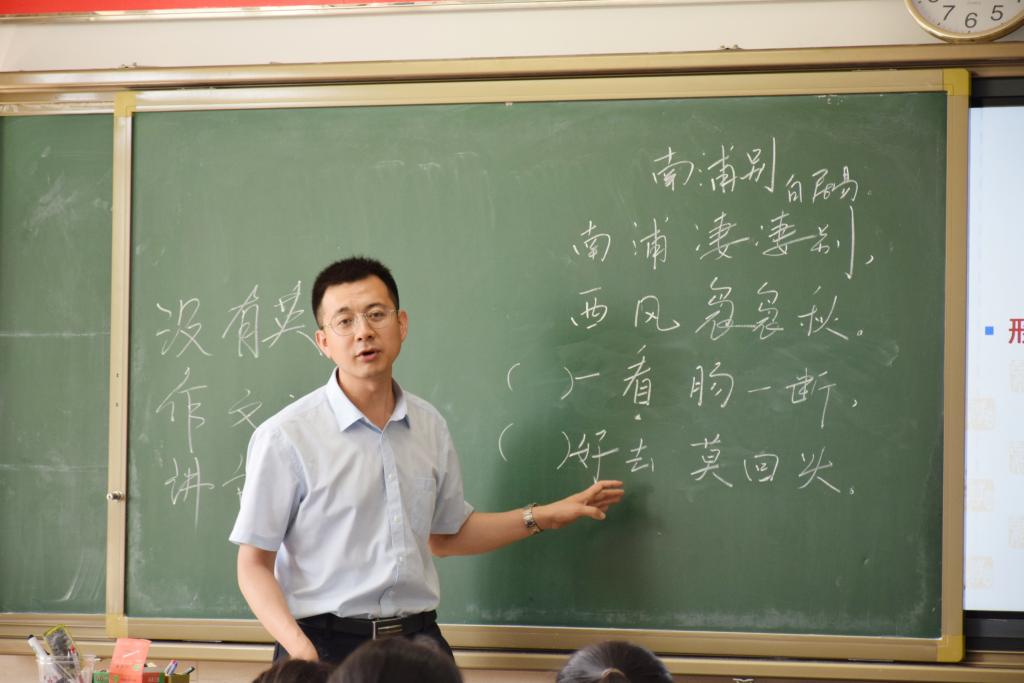 南浦别 白居易
南浦凄凄别,
西风袅袅秋。
( )一看肠一断,
( )好去莫回头。
没有英
作文
讲
形
7 6 5